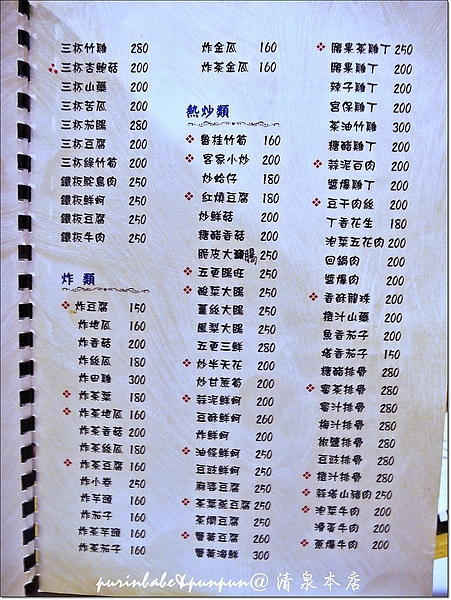 三杯竹雞 280
三杯杏鮑菇 200
三杯山藥 200
三杯苦瓜 200
三杯茄腸 280
三杯豆腐 200
三杯綠竹筍 200
鐵板鴕鳥肉 250
鐵板鮮蚵 250
鐵板豆腐 250
鐵板牛肉 250
炸 類
炸豆腐 150
炸地瓜 160
炸香菇 200
炸絲瓜 180
炸田雞 300
炸茶葉 180
炸茶地瓜 160
炸茶香菇 200
炸茶絲瓜 180
炸茶豆腐 160
炸小卷 250
炸芋頭 160
炸茄子 160
炸茶芋頭 160
炸茶茄子 160
炸金瓜 160
炸茶金瓜 160
熱炒類
魯桂竹筍 160
客家小炒 200
炒蛤仔 180
紅燒豆腐 180
炒鮮菇 200
糖醋香菇 200
脆皮大腸 250
五更腸旺 250
酸菜大腸 250
薑絲大腸 250
鳳梨大腸 250
五更三鮮 280
炒半天花 200
炒甘蔗筍 200
蒜泥鮮蚵 250
豆酥鮮蚵 260
炸鮮蚵 200
油條鮮蚵 250
豆豉鮮蚵 250
茶葉茶豆腐 250
茶燜豆腐 250
豆腐 260
300
腰果茶雞丁 250
腰果雞丁 200
辣子雞丁 200
宮保雞丁 200
茶油竹雞 300
糖醋雞丁 200
蒜泥白肉 200
醬爆雞丁 200
豆干肉絲 200
丁香花生 180
泡菜五花肉 200
回鍋肉 200
醬爆肉 200
香酥龍珠 200
橙汁山藥 200
魚香茄子 200
塔香茄子 150
糖醋排骨 280
蜜茶排骨 280
蜜汁排骨 280
梅汁排骨 280
椒鹽排骨 280
豆豉排骨 280
橙汁排骨 280
蒜塔山豬肉 250
泡菜牛肉 200
滑蛋牛肉 200
蔥爆牛肉 200
purinbabe&punpun@ 清泉本店